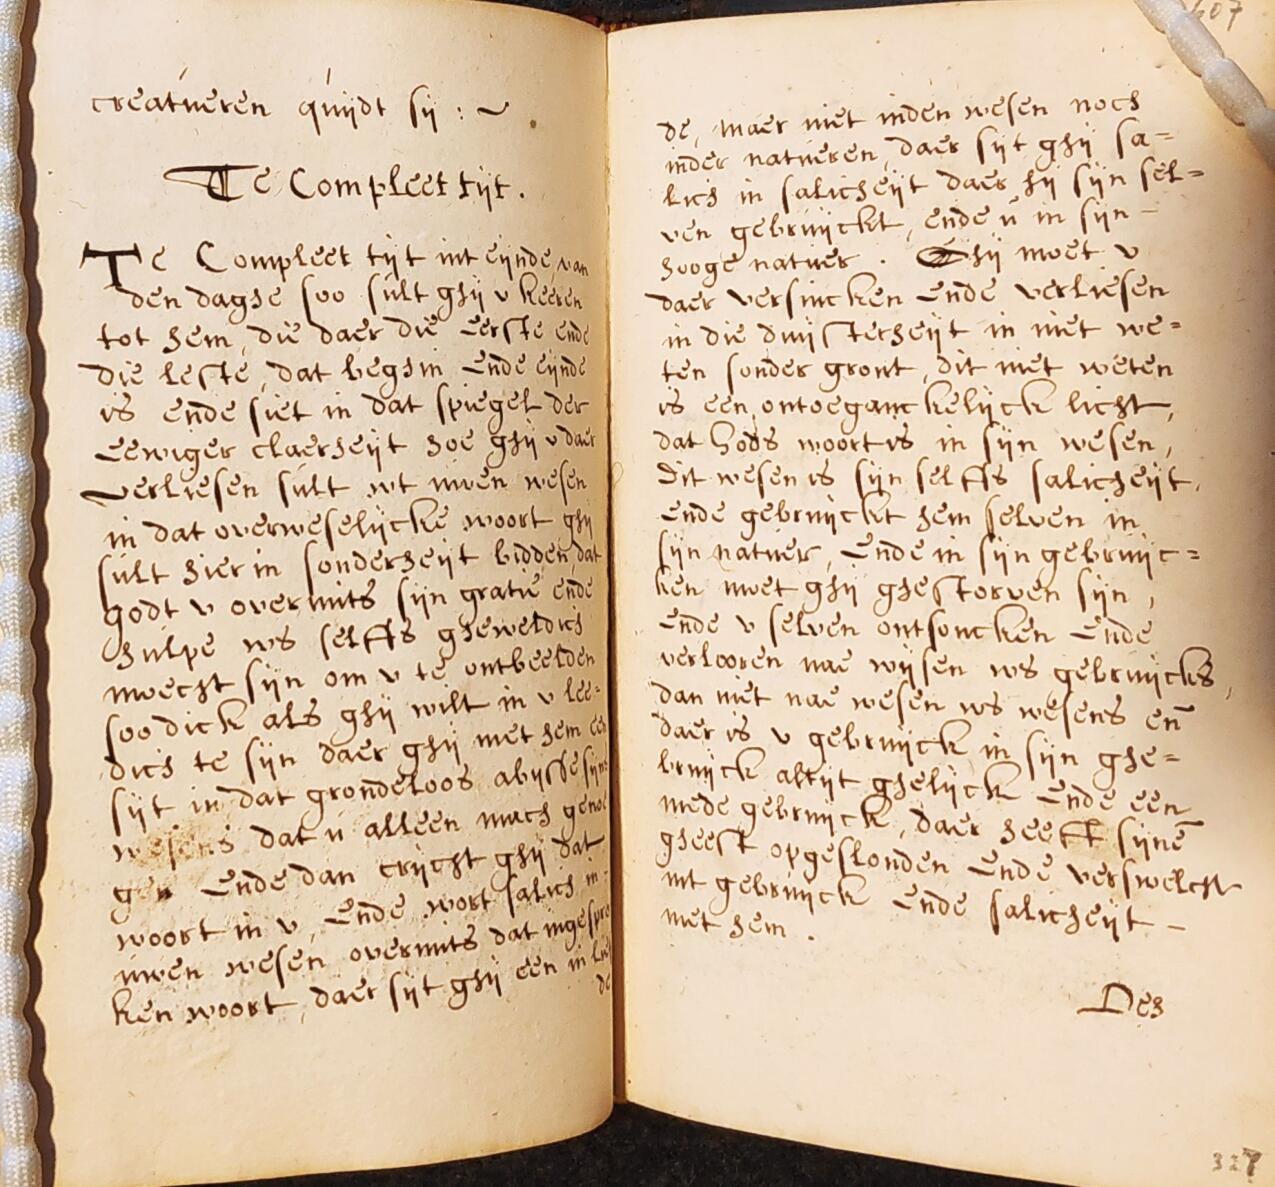 creatueren quijdt sij : ~
Te Compleet tijt.
Te Compleet tijt int eijnde van
den daghe soo sult ghij v keeren
tot hem, die daer die Eerste ende
die leste, dat beghin Ende eijnde
is ende siet in dat spiegel der
Eewiger claerheijt hoe ghij v daer
Verliesen sult wt uwen wesen
in dat overweselijcke woort ghij
sult hier in sonderheijt bidden, dat
godt v overmits sijn gratie ende
hulpe ws selffs gheweldich
moecht sijn om v te ontbeelden
soo dick als ghij wilt in v lee=
dich te sijn daer ghij met hem een
sijt in dat grondeloos abijsse sijns
wesens dat u alleen mach genoe
gen Ende dan crijcht ghij dat
woort in v, Ende wort salich in
uwen wesen overmits dat ingespro
ken woort, daer sijt ghij een in lief
de
607
de, maer niet inden wesen noch
inder natueren, daer sijt ghij sa=
lich in salicheijt daer hij sijn sel=
ven gebruijckt, ende u in sijn -
hooge natuer . Ghij moet v
daer versincken Ende verliesen
in die duijsterheijt in niet we=
ten sonder gront, dit niet weten
is een ontoeganckelijck licht,
dat Gods woort is in sijn wesen,
Dit wesen is sijn selffs salicheijt,
Ende gebruijckt hem selven in
sijn natuer, Ende in sijn gebruijc=
ken moet ghij ghestorven sijn,
Ende v selven ontsoncken Ende
verlooren nae wijsen ws gebruijcks,
dan niet nae wesen ws wesens en̄
daer is v gebruijck in sijn ghe=
bruijck altijt ghelijck Ende een
mede gebruijck, daer heeft sijnē
gheest opgeslonden Ende verswelcht
int gebruijck Ende salicheijt -
met hem .
Des
327